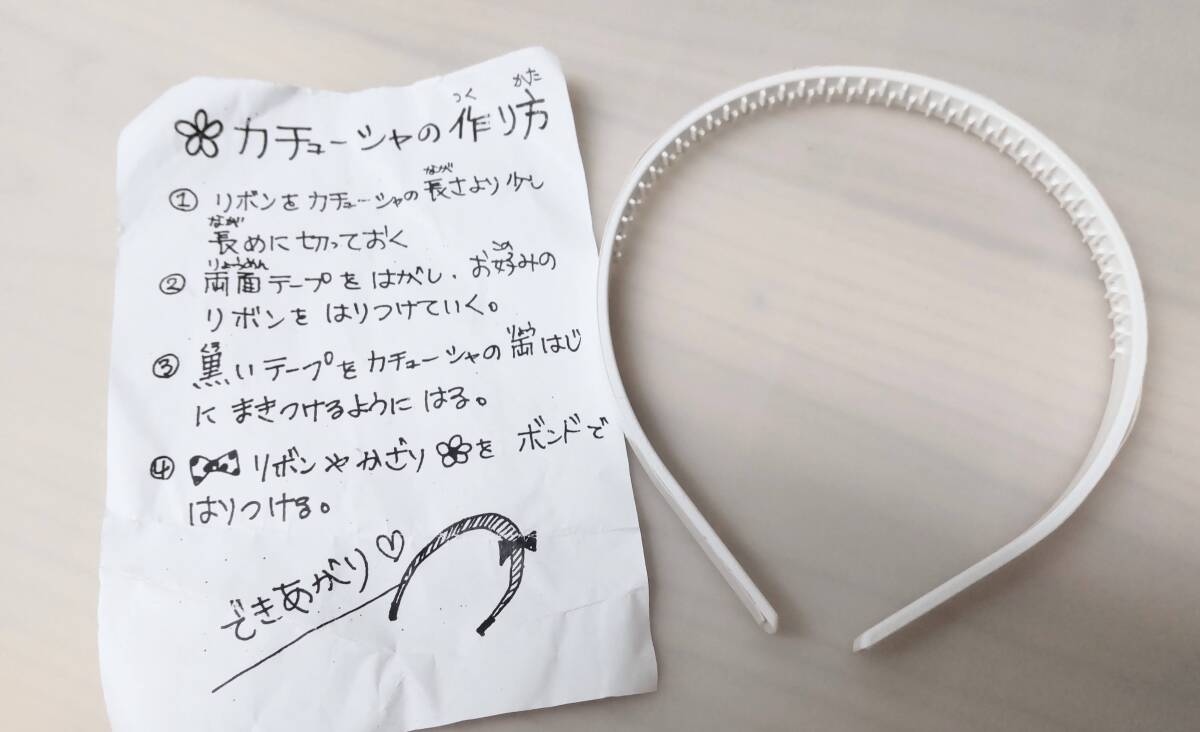 カチューシャの作り方
つく かた
① リボンをカチューシャの長さより少し
なが
長めに切っておく
なが
② 両面テープをはがし、お好みの
りょうめん この
リボンをはりつけていく。
③ 黒いテープをカチューシャの両はじ
くろ りょう
にまきつけるようにはる。
④ リボンやかざりをボンドで
はりつける。
できあがり♡